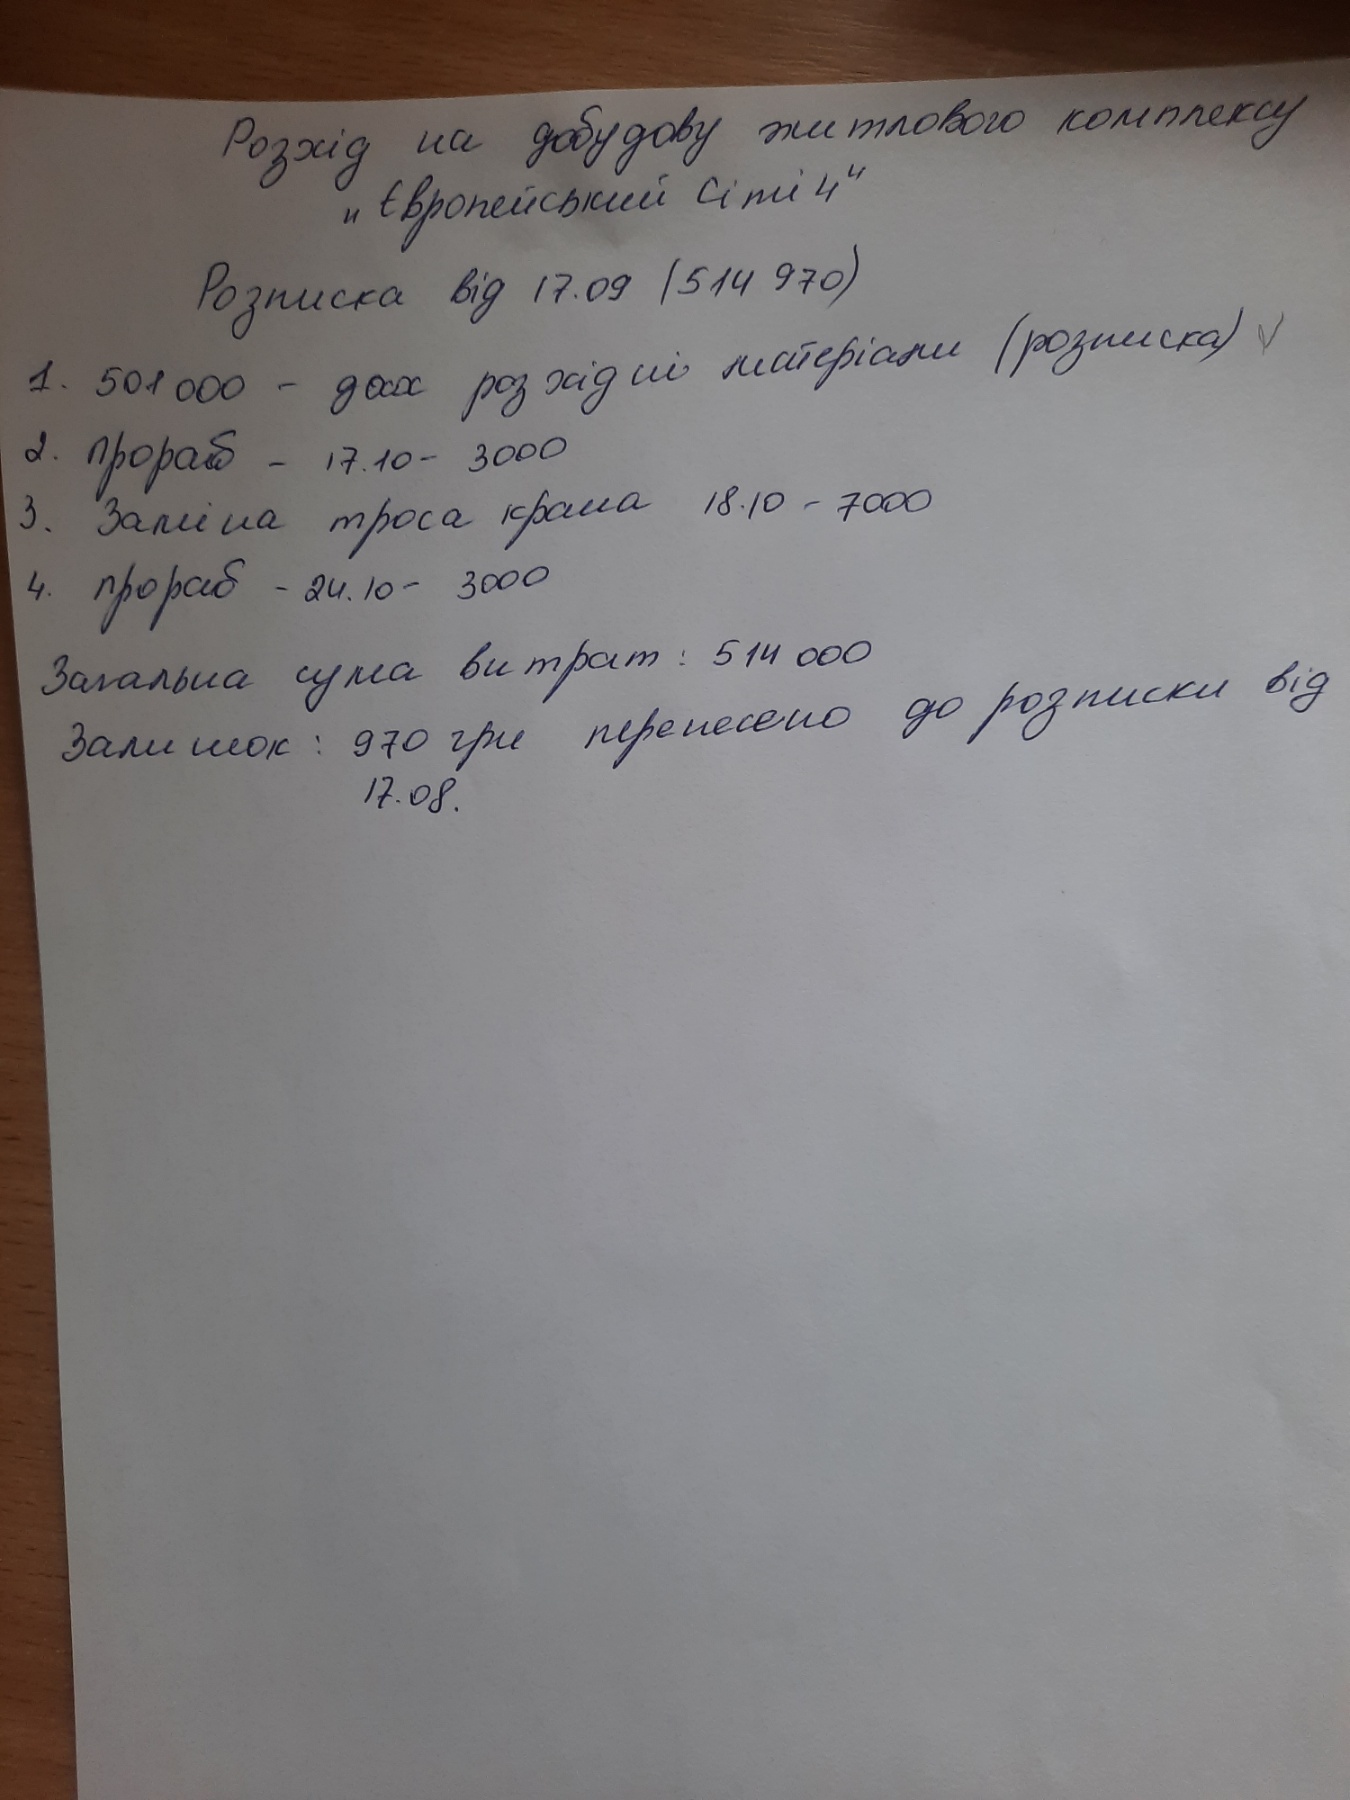 Розхід на добудову житлового комплексу
"Європейський Сіті 4"
Розписка від 17.09 (514 970)
1. 501 000 - дах розхідні матеріали (розписка) ✓
2. прораб - 17.10 - 3000
3. Заміна троса крана 18.10 - 7000
4. прораб - 24.10 - 3000
Загальна сума витрат: 514 000
Залишок: 970 грн перенесено до розписки від
17.08.